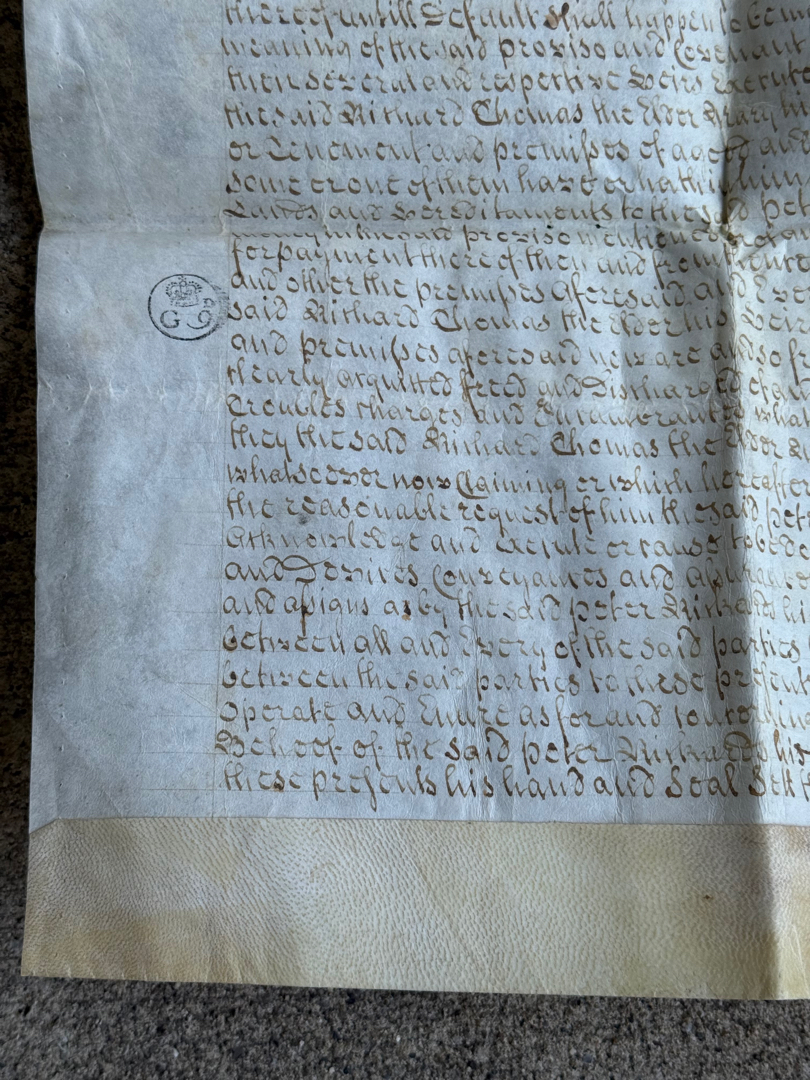 thereof untill Default shall happen to be m
meaning of the said proviso and Covenant
their several and respective Heirs Executo
the said Richard Thomas the Elder Mary his
or Tenement and premisses of aged and
some or one of them have or hath in him
Lands and Hereditaments to the said Pet
money in the said proviso mentioned
for payment thereof then and from
and other the premisses aforesaid and Eve
said Richard Thomas the Elder his Heirs
and premisses aforesaid now are and so fr
clearly acquitted freed and Discharged of and
Troubles Charges and Incumbrances what
they the said Richard Thomas the Elder
whatsoever now Claiming or which hereafter
the reasonable request of him the said Pet
Acknowledge and Execute or cause to be do
and Devises Conveyances and assurance
and assigns as by the said Peter Richards hi
between all and Every of the said parties
between the said parties to these present
operate and Enure as for and
Behoof of the said Peter Richards his
these presents his hand and Seal Sett
G 9 D